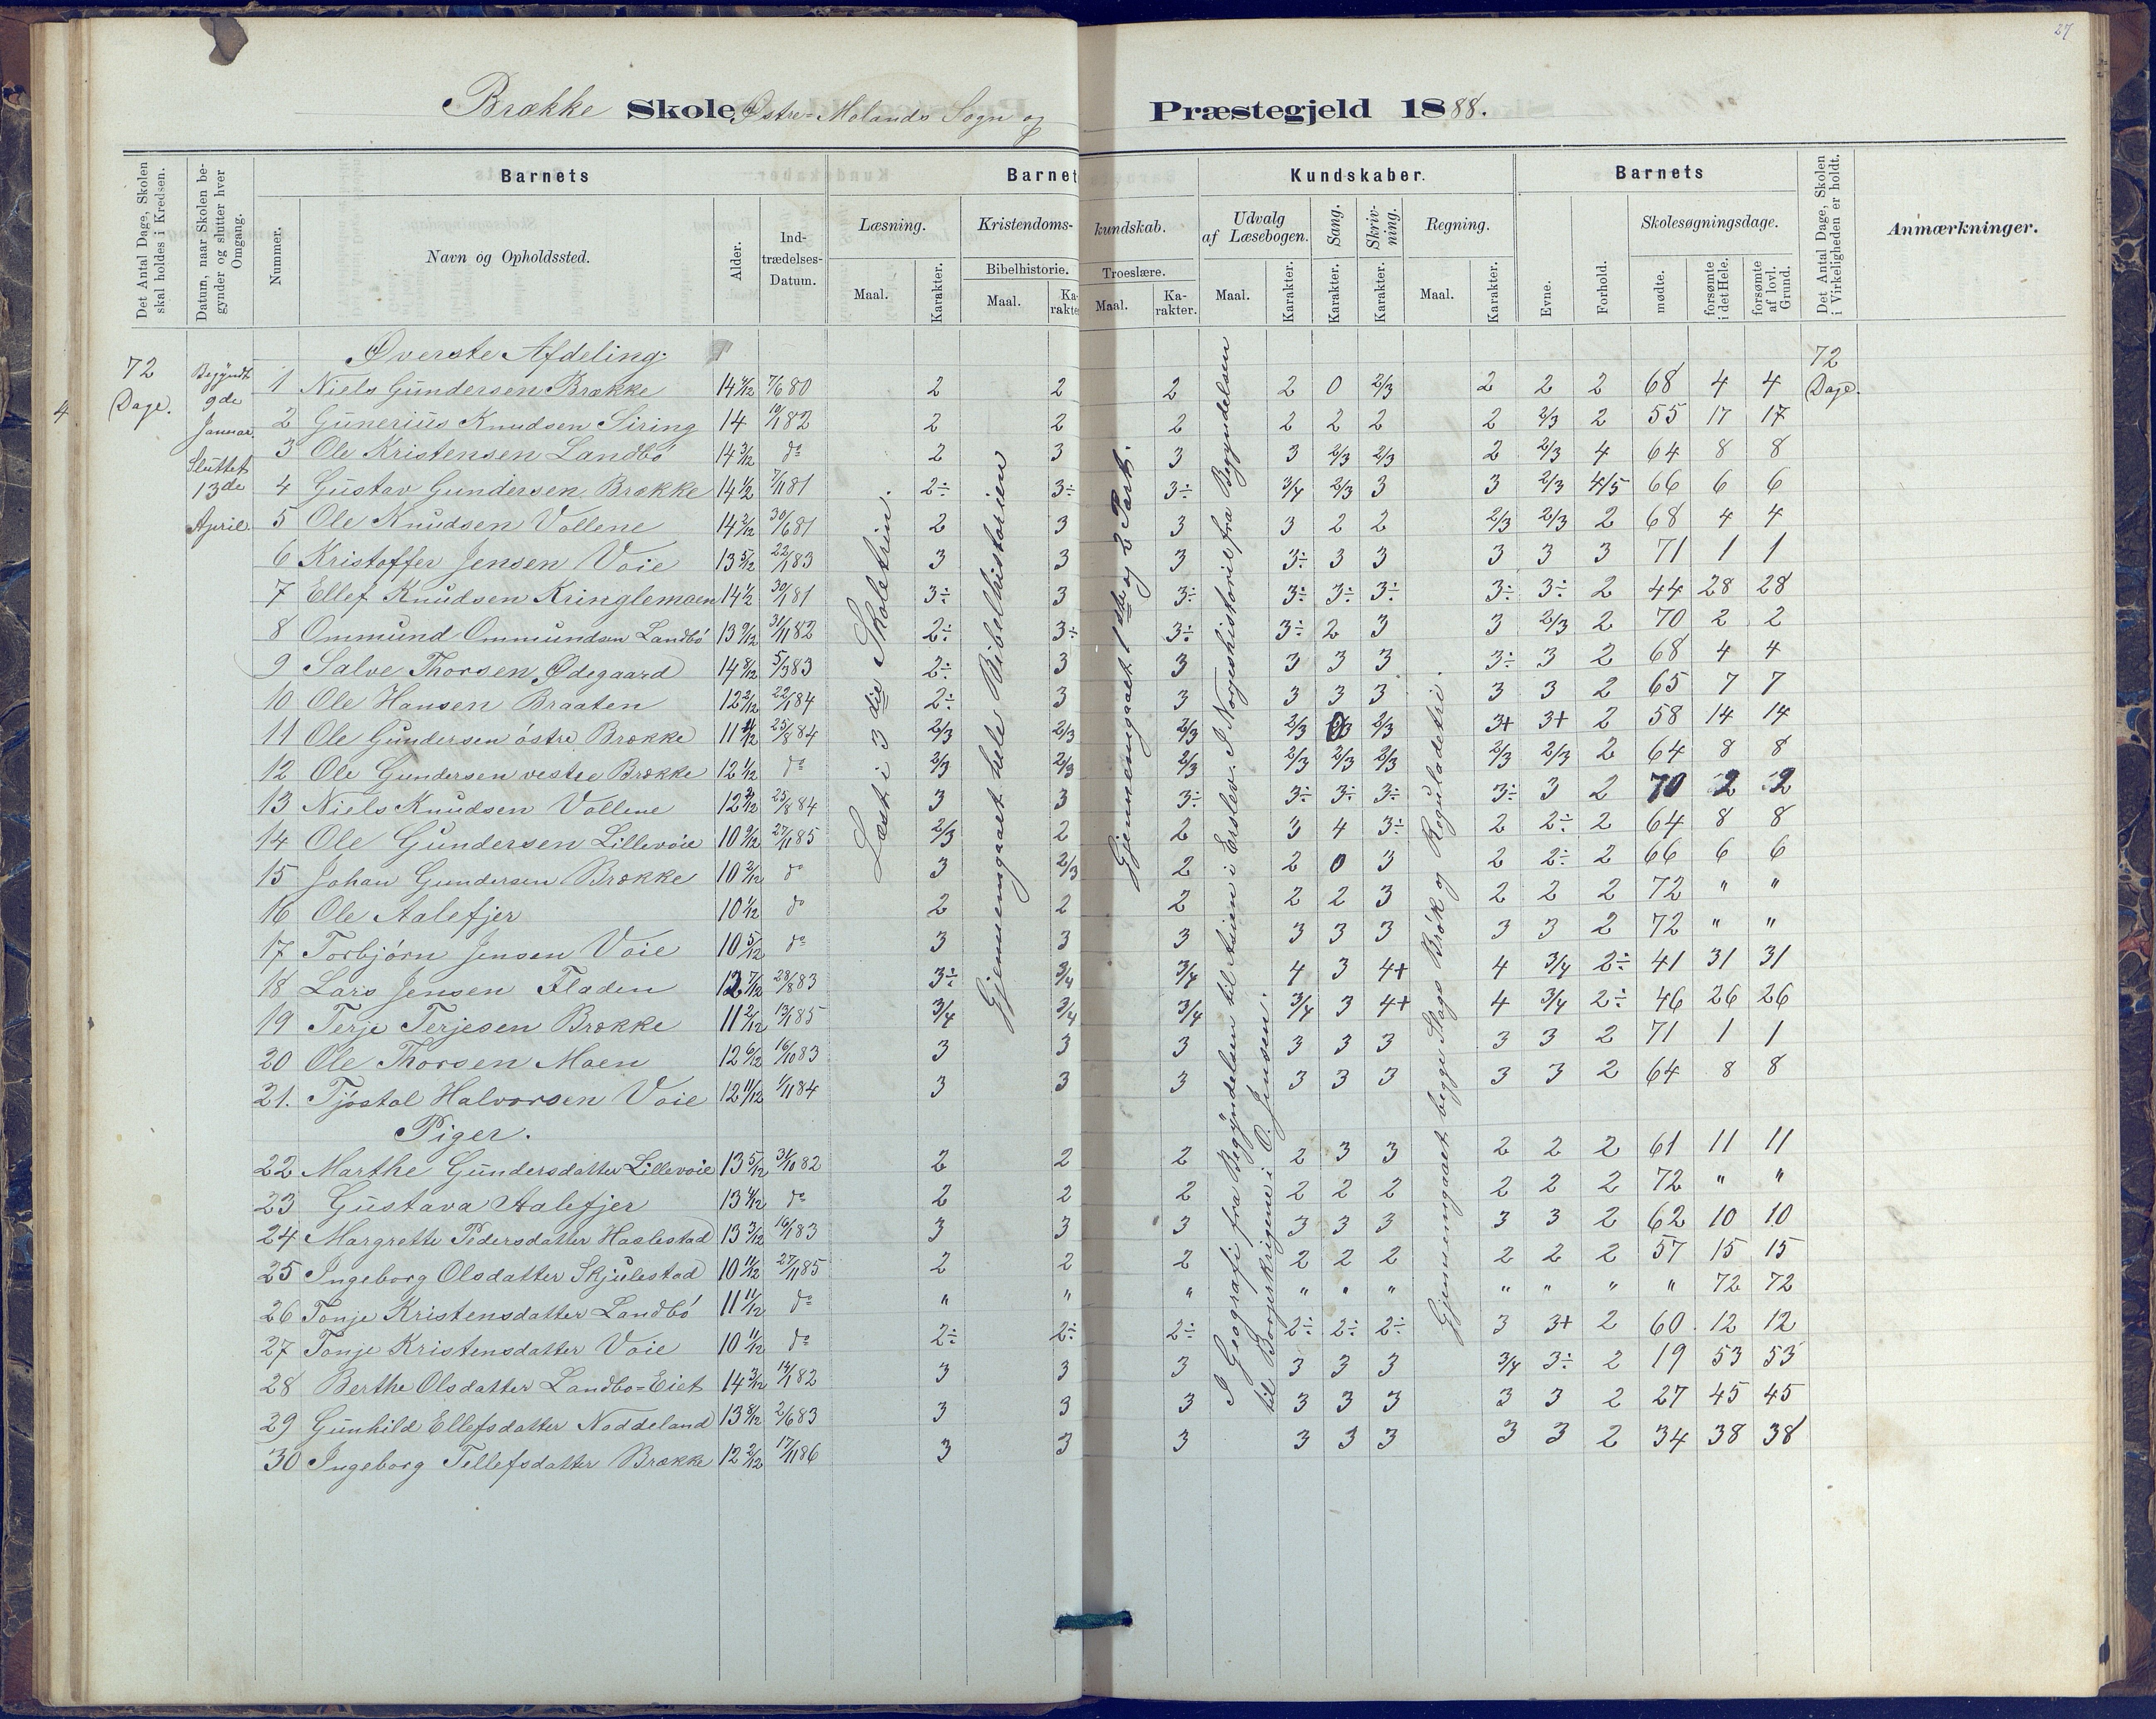 27
Brække Skole Østre=Molands Sogn og Præstegjeld 1888.
Det Antal Dage, Skolen skal holdes i Kredsen.
Datum, naar Skolen begynder og slutter hver Omgang.
Barnets
Nummer.
Navn og Opholdssted.
Alder.
Ind-
trædelses-
Datum.
Barnets Kundskaber.
Læsning.
Maal.
Karakter.
Kristendoms-kundskab.
Bibelhistorie.
Maal.
Ka-
rakter.
Troeslære.
Maal.
Ka-
rakter.
Udvalg
af Læsebogen.
Maal.
Karakter.
Sang.
Karakter.
Skriv-
ning.
Karakter.
Regning.
Maal.
Karakter.
Barnets
Evne.
Forhold.
Skolesøgningsdage.
mødte.
forsømte i det Hele.
forsømte af lovl. Grund.
Det Antal Dage, Skolen i Virkeligheden er holdt.
Anmærkninger.
4
72
Dage.
Begyndt
9de
Januar.
Sluttet
13de
April.
72
Dage.
Læst i 3die Skoletrin.
Gjennemgaaet hele Bibelhistorien
Gjennemgaaet 1ste og 2 Part.
I Geografi fra Begyndelsen til Asien i Erslev. I Norgeshistorie fra Begyndelsen
til Borgerkrigene i O. Jensen.
Gjennemgaaet begge Slags Brøk og Reguladetri.
Øverste Afdeling.
1 Niels Gundersen Brække 14 4/12 7/6 80 2 2 2 2 0 2/3 2 2 2 68 4 4
2 Gunerius Knudsen Siring 14 10/1 82 2 2 2 2 2 2 2 2/3 2 55 17 17
3 Ole Kristensen Landbö 14 3/12 do 2 3 3 3 2/3 2/3 2 2/3 4 64 8 8
4 Gustav Gundersen Brække 14 1/2 7/11 81 2÷ 3÷ 3÷ 3/4 2/3 3 3 2/3 4/5 66 6 6
5 Ole Knudsen Vollene 14 2/12 30/6 81 2 3 3 3 2 2 2/3 2/3 2 68 4 4
6 Kristoffer Jensen Voie 13 5/12 22/1 83 3 3 3 3÷ 3 3 3 3 3 71 1 1
7 Ellef Knudsen Kringlemoen 14 1/2 30/1 81 3÷ 3 3÷ 3÷ 3÷ 3÷ 3÷ 3÷ 2 44 28 28
8 Ommund Ommundsen Landbö 13 9/12 31/11 82 2÷ 3÷ 3÷ 3÷ 2 3 3 2/3 2 70 2 2
9 Salve Thorsen Ødegaard 14 8/12 5/3 83 2÷ 3 3 3 3 3 3÷ 3 2 68 4 4
10 Ole Hansen Braaten 12 2/12 22/1 84 2÷ 3 3 3 3 3 3 3 2 65 7 7
11 Ole Gundersen östre Brække 11 25/8 84 2/3 2/3 2/3 2/3 2/3 3+ 3+ 2 58 14 14
12 Ole Gundersen vestre Brække 12 1/12 do 2/3 2/3 2/3 2/3 2/3 2/3 2/3 2/3 2 64 8 8
13 Niels Knudsen Vollene 12 2/12 25/8 84 3 3 3÷ 3÷ 3÷ 3÷ 3÷ 3 2 70 2 2
14 Ole Gundersen Lillevoie 10 9/12 27/11 85 2/3 2 2 3 4 3÷ 2 2÷ 2 64 8 8
15 Johan Gundersen Brække 10 3/12 do 3 2/3 2 2 0 3 2 2÷ 2 66 6 6
16 Ole Aalefjer 10 1/12 do 2 2 2 2 2 3 2 2 2 72 " "
17 Torbjörn Jensen Voie 10 5/12 do 3 3 3 3 3 3 3 3 2 72 " "
18 Lars Jensen Fladen 12 7/12 28/8 83 3÷ 3/4 3/4 4 3 4+ 4 3/4 2÷ 41 31 31
19 Terje Terjesen Brække 11 2/12 13/1 85 3/4 3/4 3/4 3/4 3 4+ 4 3/4 2÷ 46 26 26
20 Ole Thorsen Moen 12 6/12 16/10 83 3 3 3 3 3 3 3 3 2 71 1 1
21. Tjöstol Halvorsen Voie 12 11/12 1/11 84 3 3 3 3 3 3 3 3 2 64 8 8
Piger.
22 Marthe Gundersdatter Lillevoie 13 5/12 31/10 82 2 2 2 2 3 3 2 2 2 61 11 11
23 Gustava Aalefjer 13 4/12 do 2 2 2 2 2 2 2 2 2 72 " "
24 Margrethe Pedersdatter Haslestad 13 3/12 16/1 83 3 3 3 3 3 3 3 3 2 62 10 10
25 Ingeborg Olsdatter Skjulestad 10 11/12 27/11 85 2 2 2 2 2 2 2 2 2 57 15 15
26 Tonje Kristensdatter Landbö 11 11/12 do " " " " " " " " " " 72 72
27 Tonje Kristensdatter Voie 10 11/12 do 2÷ 2÷ 2÷ 2÷ 2÷ 2÷ 3 3+ 2 60 12 12
28 Berthe Olsdatter Landbo=Eiet 14 3/12 14/1 82 3 3 3 3 3 3 3/4 3÷ 2 19 53 53
29 Gunhild Ellefsdatter Noddeland 13 8/12 2/6 83 3 3 3 3 3 3 3 3 2 27 45 45
30 Ingeborg Tellefsdatter Brække 12 2/12 17/11 86 3 3 3 3 3 3 3 3 2 34 38 38